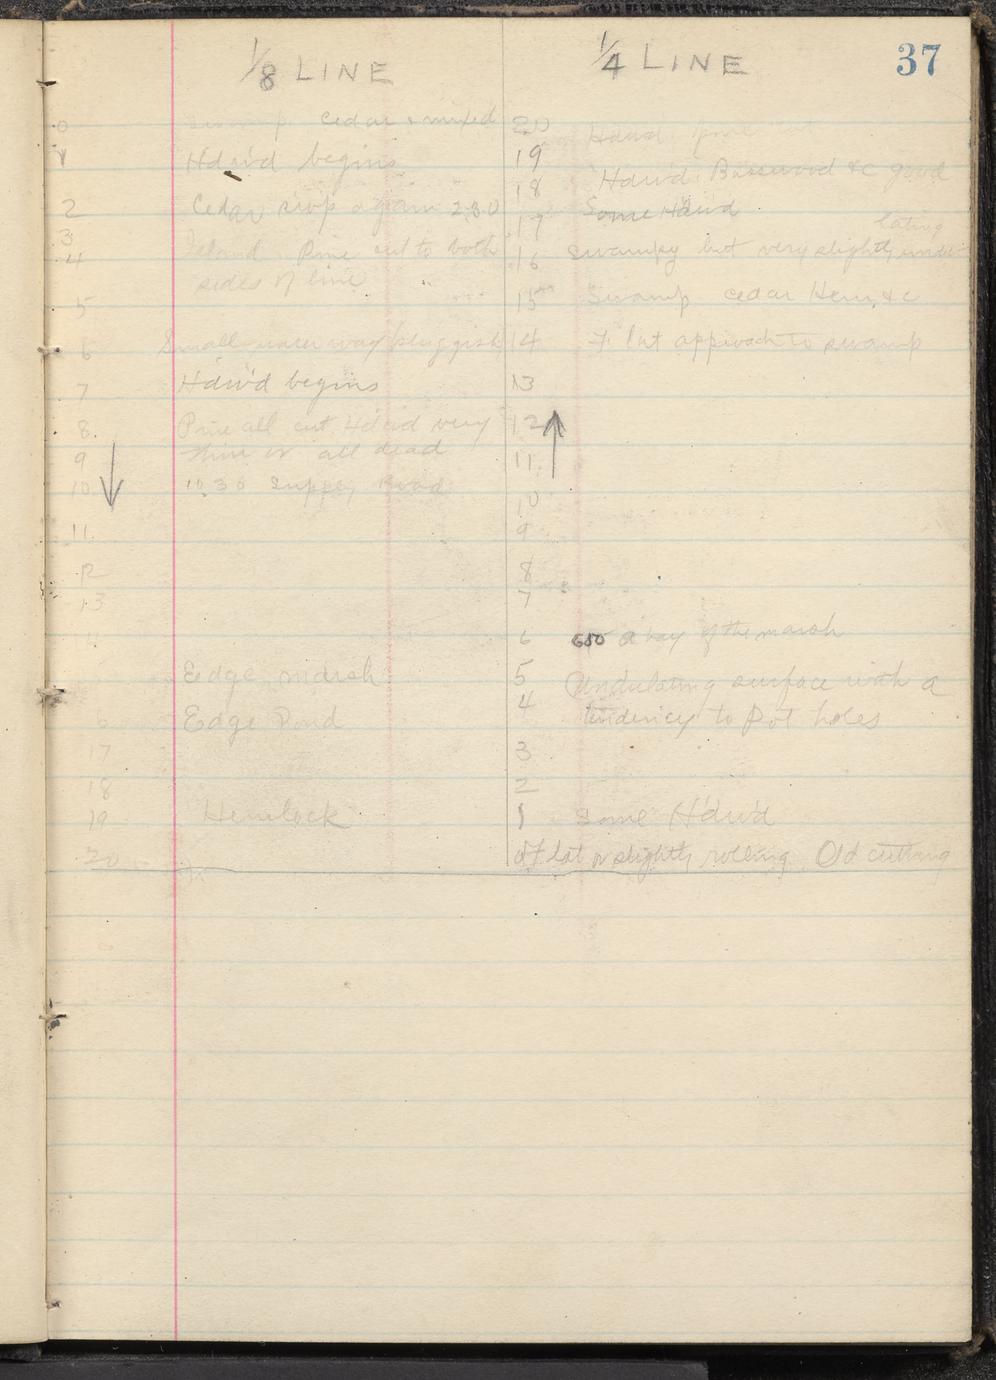 37
1/8 LINE
0 Swamp cedar & mixed
1 Hdw'd begins
2 Cedar swp again 230
3
4 Island. Pine cut to both
sides of line
5
6 Small waterway sluggish
7 Hdw'd begins
8 Pine all cut. Hdwd very
9 thin or all dead
10 1030 Supply Road
11
12
13
Edge marsh
6 Edge Pond
17
18
19 Hemlock
20
1/4 LINE
20 Hdwd. pine cut
19
18 Hdw'd. Basswood &c good
17 Some Hdwd
lating
16 Swampy but very slightly undu
15 Swamp cedar Hem. &c
14 Flat approach to swamp
13
12
11
10
9
8
7
6 650 a bay of the marsh
5 Undulating surface with a
4 tendency to Pot holes
3
2
1 Some H'dw'd
0 Flat or slightly rolling. Old cutting